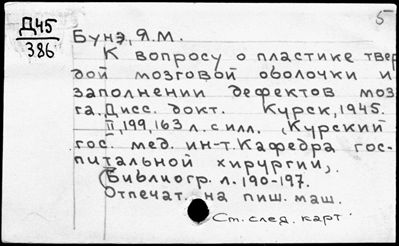 Д45
386
5
Бунэ, Я.М.
К вопросу о пластике твер
дой мозговой оболочки и
заполнении дефектов моз
га. Дисс. докт. Курск, 1945.
II, 199, 163 л. с илл. (Курский
гос. мед. ин-т. Кафедра гос-
питальной хирургии).
(Библиогр. л. 190-197.
Отпечат. на пиш. маш.
Ст. след. карт.